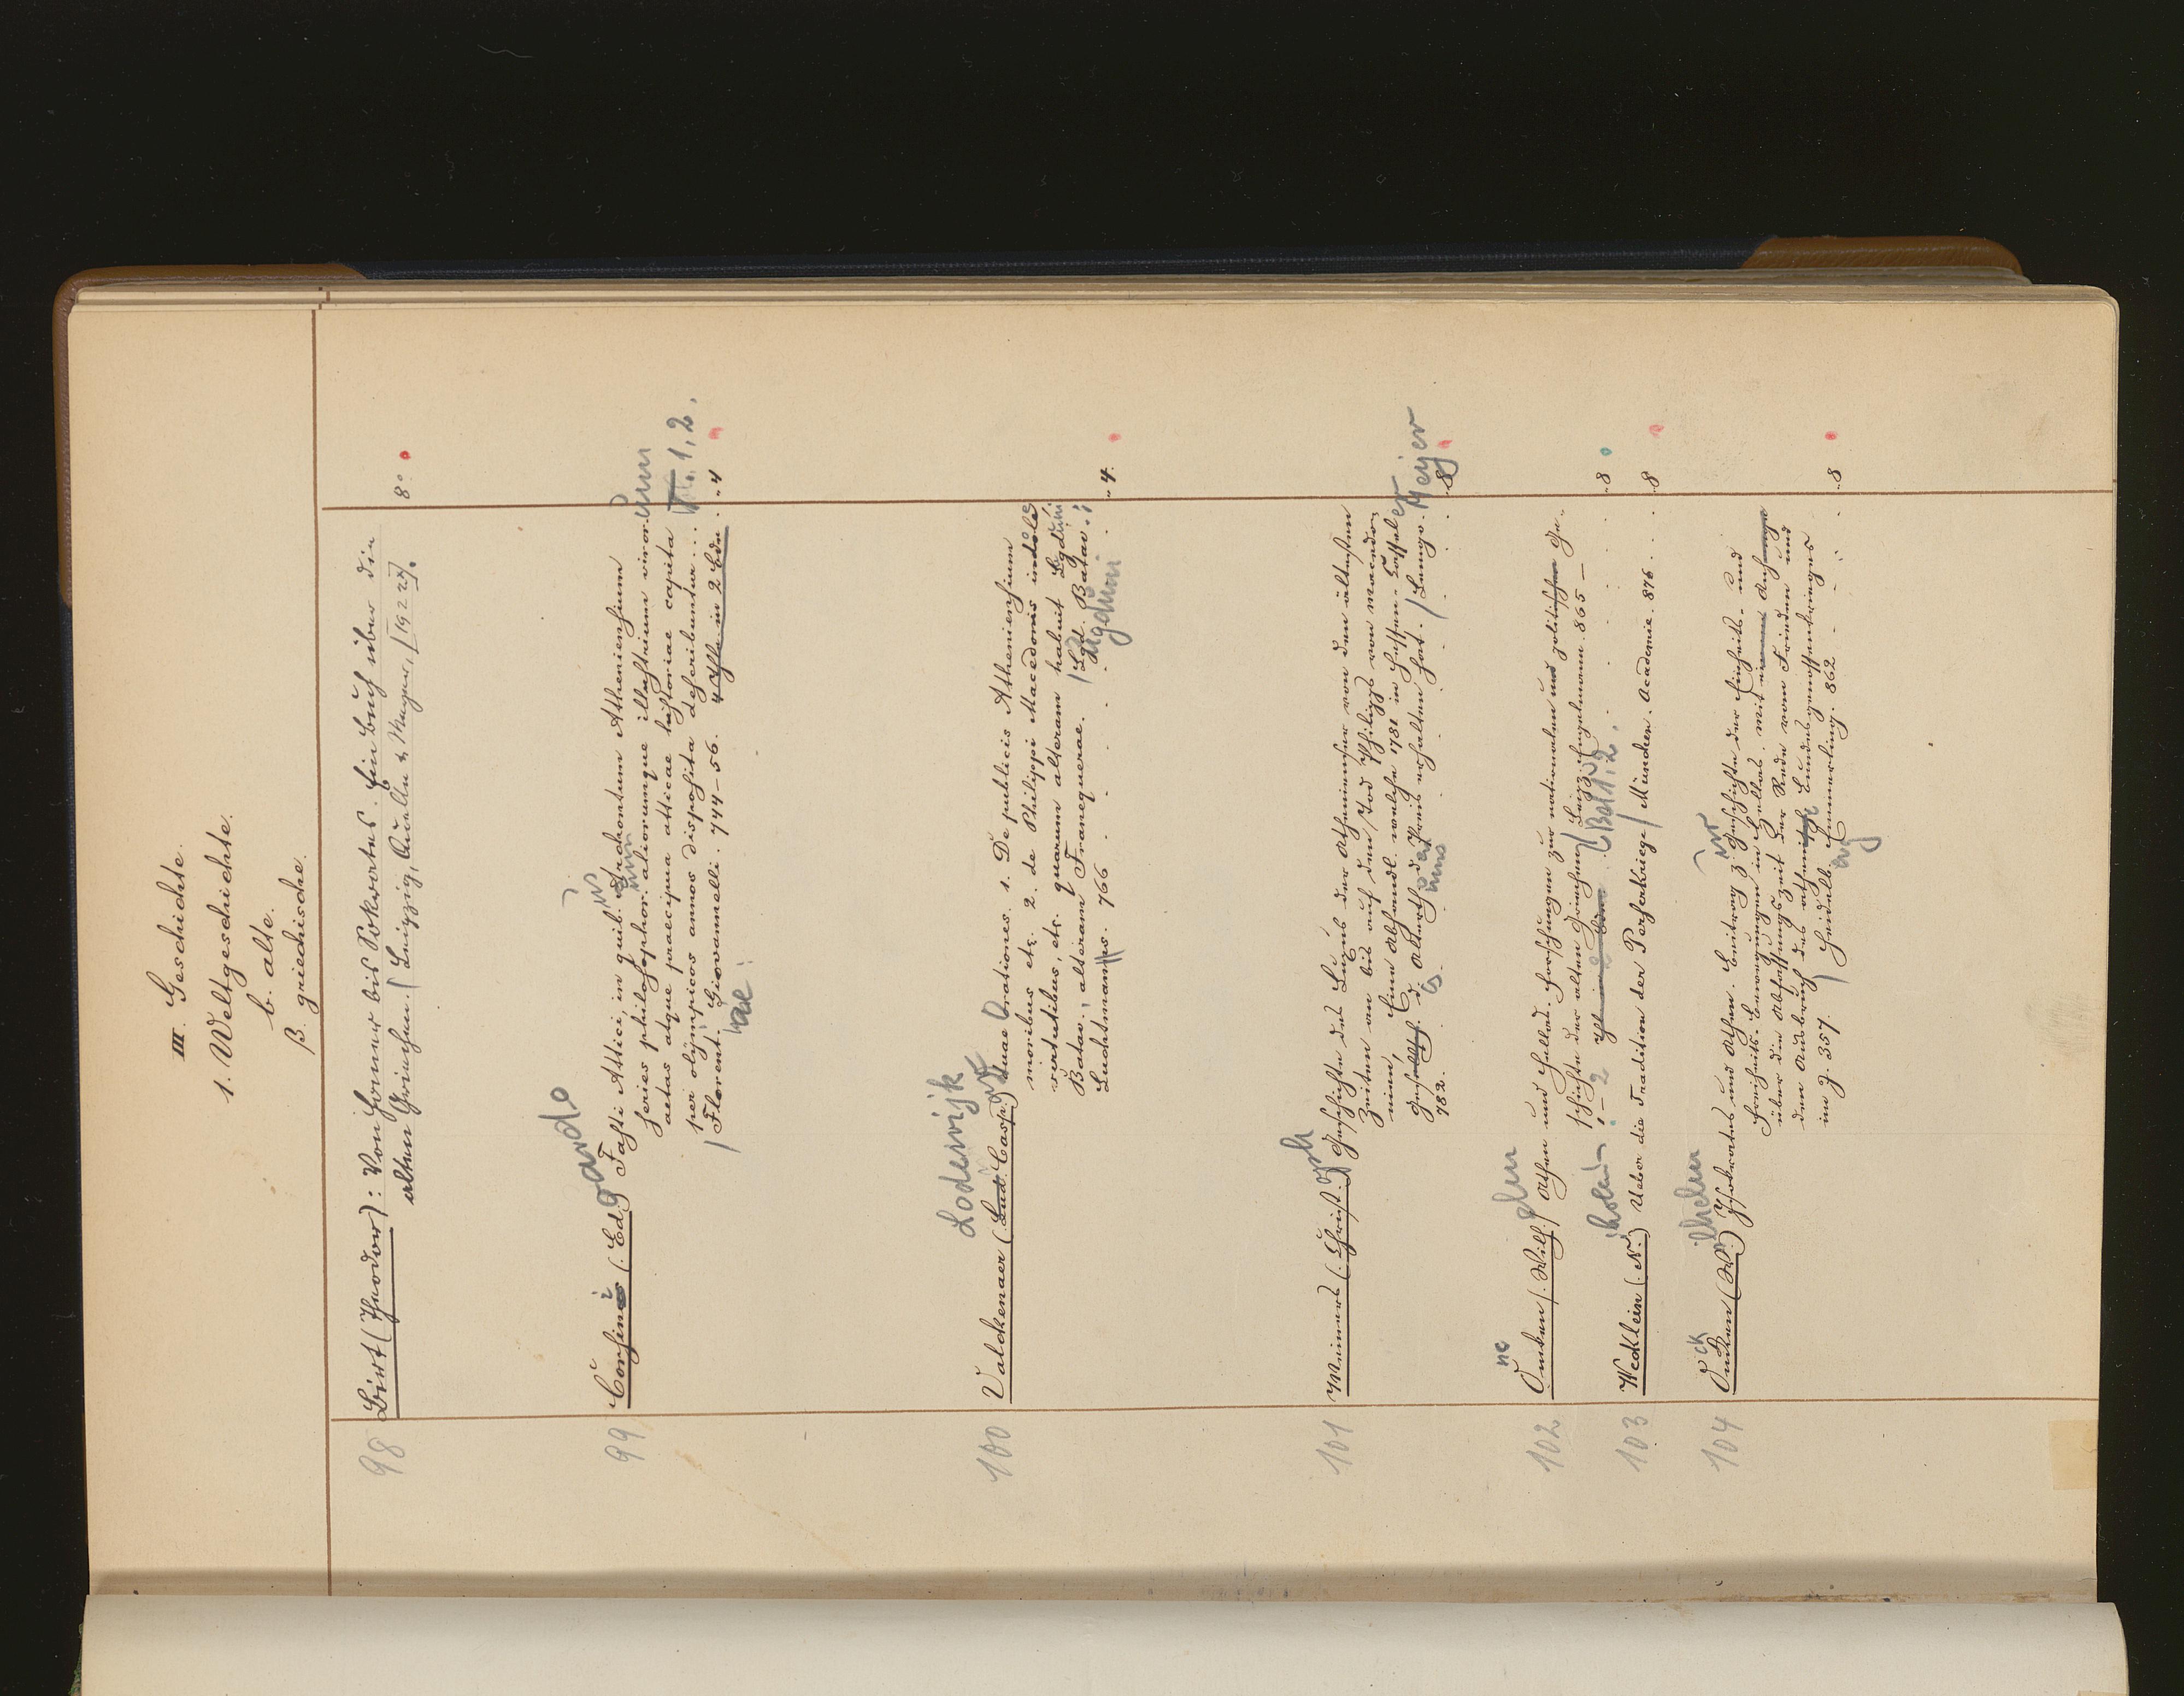 III. Geschichte.
1. Weltgeschichte.
b. alte.
β. griechische.
98 Birt (Theodor): Von Homer bis Sokrates. Ein Buch über die
alten Griechen. / Leipzig, Quelle & Meyer, [192 8°
99 Corsini (Ed. oardo Fasti Attici, in quib. us Archontum Atheniensium
series philosophor. aliorumque illustrium viror. um
aetas atque praecipua atticae historiae capita
per olympicos annos disposita describuntur... 1, 2.
/ Florent. iae Giovannelli. 744-56. 4 Thle in 2 Bdn .. 4
Lodewijk
100 Valckenaer (Lud. Casp.) duae Orationes. 1. De publicis Atheniensium
moribus etc. 2. de Philippi Macedonis indole
virtutibus, etc. quarum alteram habuit Lgduni
Batav., alteram Franequerae. / Lgd. Batav.:
Lugduni
Luchtmanns. 766 . . . . . 4.
101 Meiners (Christ. oph Geschichte des Luxus der Athenienser von den ältesten
Zeiten an bis auf den Tod Philipps von Macedo-
nien, Eine Abhandl. welche 1781 in Hessen-Cassel
d. Alterth. d. Preis erhalten hat. / Lemgo. Meyer
782. . . . . 8
102 Oncken (Wilh. elm Athen und Hellas. Forschungen zur nationalen und politischen Ge-
schichte der alten Griechen / Leipzig Engelmann. 865 –
1-2 Bd 1.2. . . . 8
103 Wecklein (N. ikolaus) Ueber die Tradition der Perserkriege / München. Academie. 876. . . . 8
104 Oncken (W. ilhelm Isokrates und Athen. Beitrag z. ur Geschichte der Einheits- und
Freiheits-Bewegungen in Hellas. mit einem Anhange
über die Abfassungszeit der Rede vom Frieden und
den Ausbruch des athenischen Bundesgenossenkrieges
im J. 357. / Heidelb. erg Emmerling. 862 . . . 8